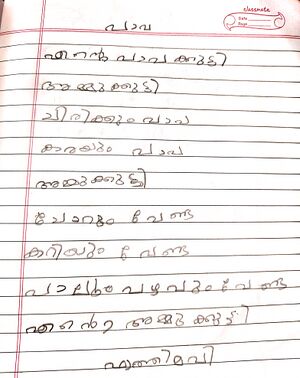 classmate
Date
Page
പാവ
എന്റെ പാവക്കുട്ടി
അമ്മുക്കുട്ടി
ചിരിക്കും പാവ
കരയും പാവ
അമ്മുക്കുട്ടി
ചോറും വേണ്ട
കറിയും വേണ്ട
പാലും പഴവും വേണ്ട
എന്റെ അമ്മുക്കുട്ടി